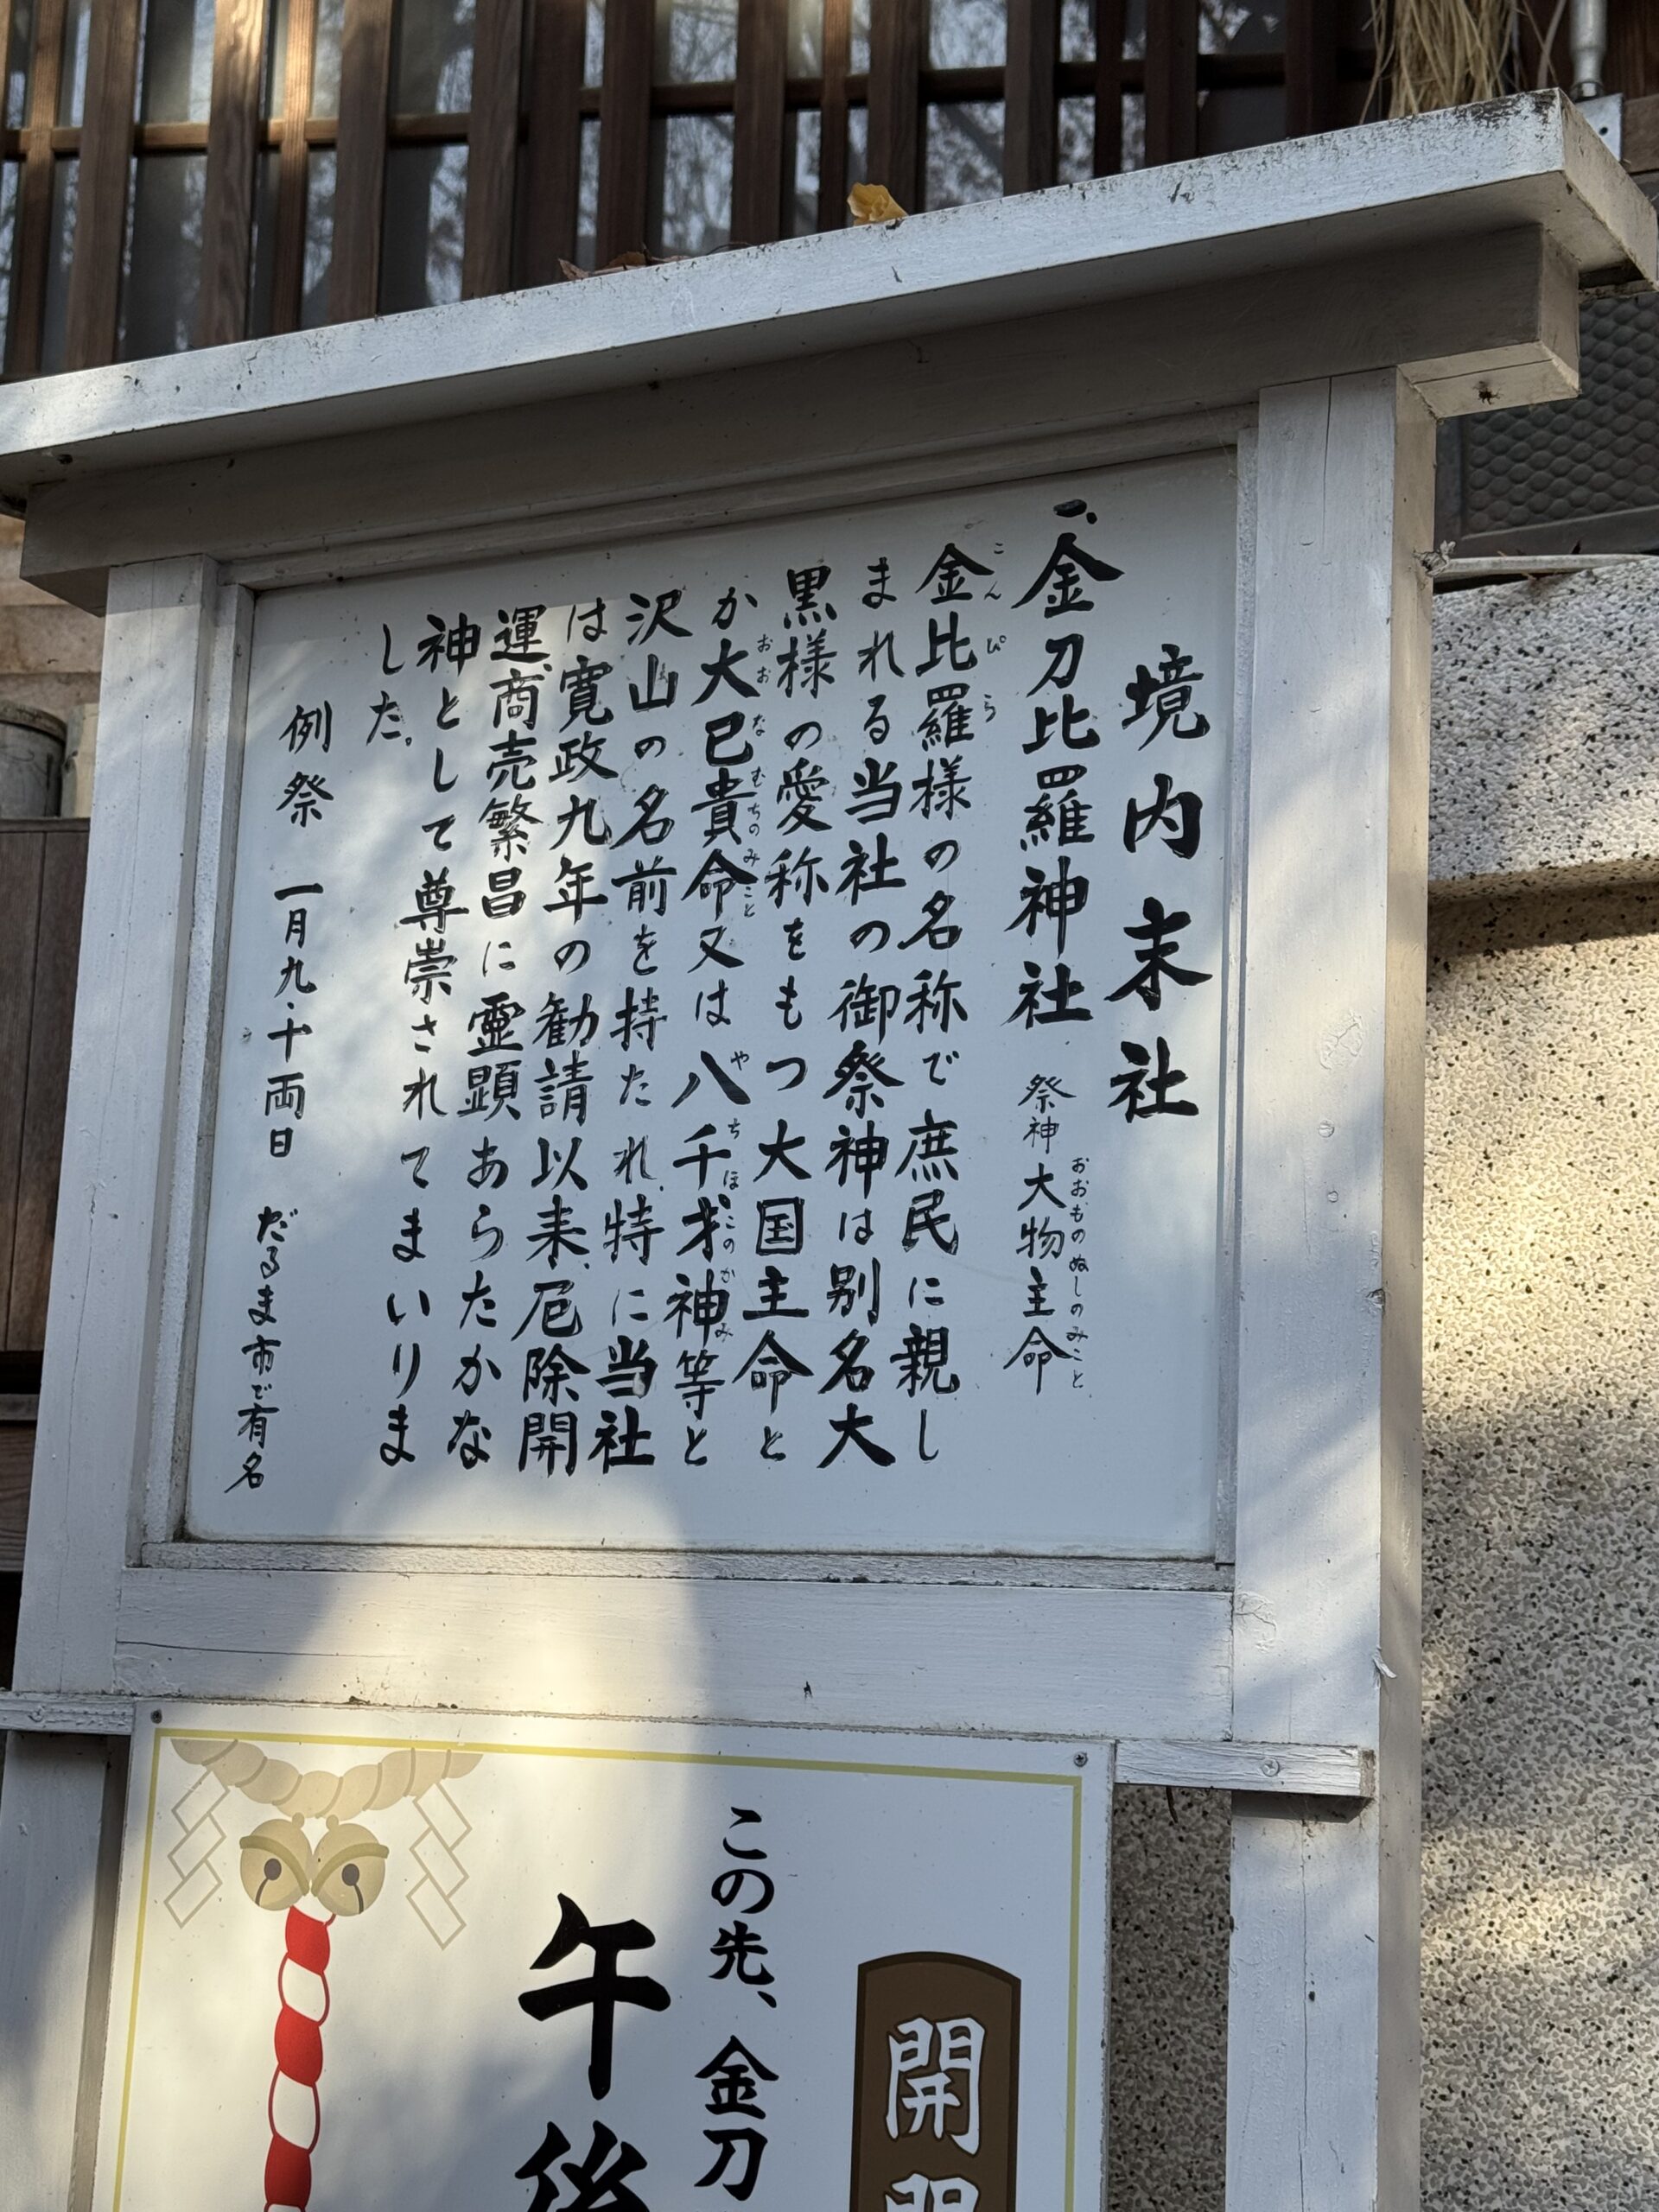 境内末社
一、金刀比羅神社 祭神 大物主命
おおものぬしのみこと
金比羅様の名称で庶民に親し
こんぴら
まれる当社の御祭神は別名大
黒様の愛称をもつ大国主命と
か大已貴命又は八千才神等と
おおなむちのみこと やちほこのかみ
沢山の名前を持たれ、特に当社
は寛政九年の勧請以来、厄除開
運、商売繁昌に霊顕あらたかな
神として尊崇されてまいりま
した。
例祭 一月九・十両日 だるま市で有名
開
この先、金刀
午後